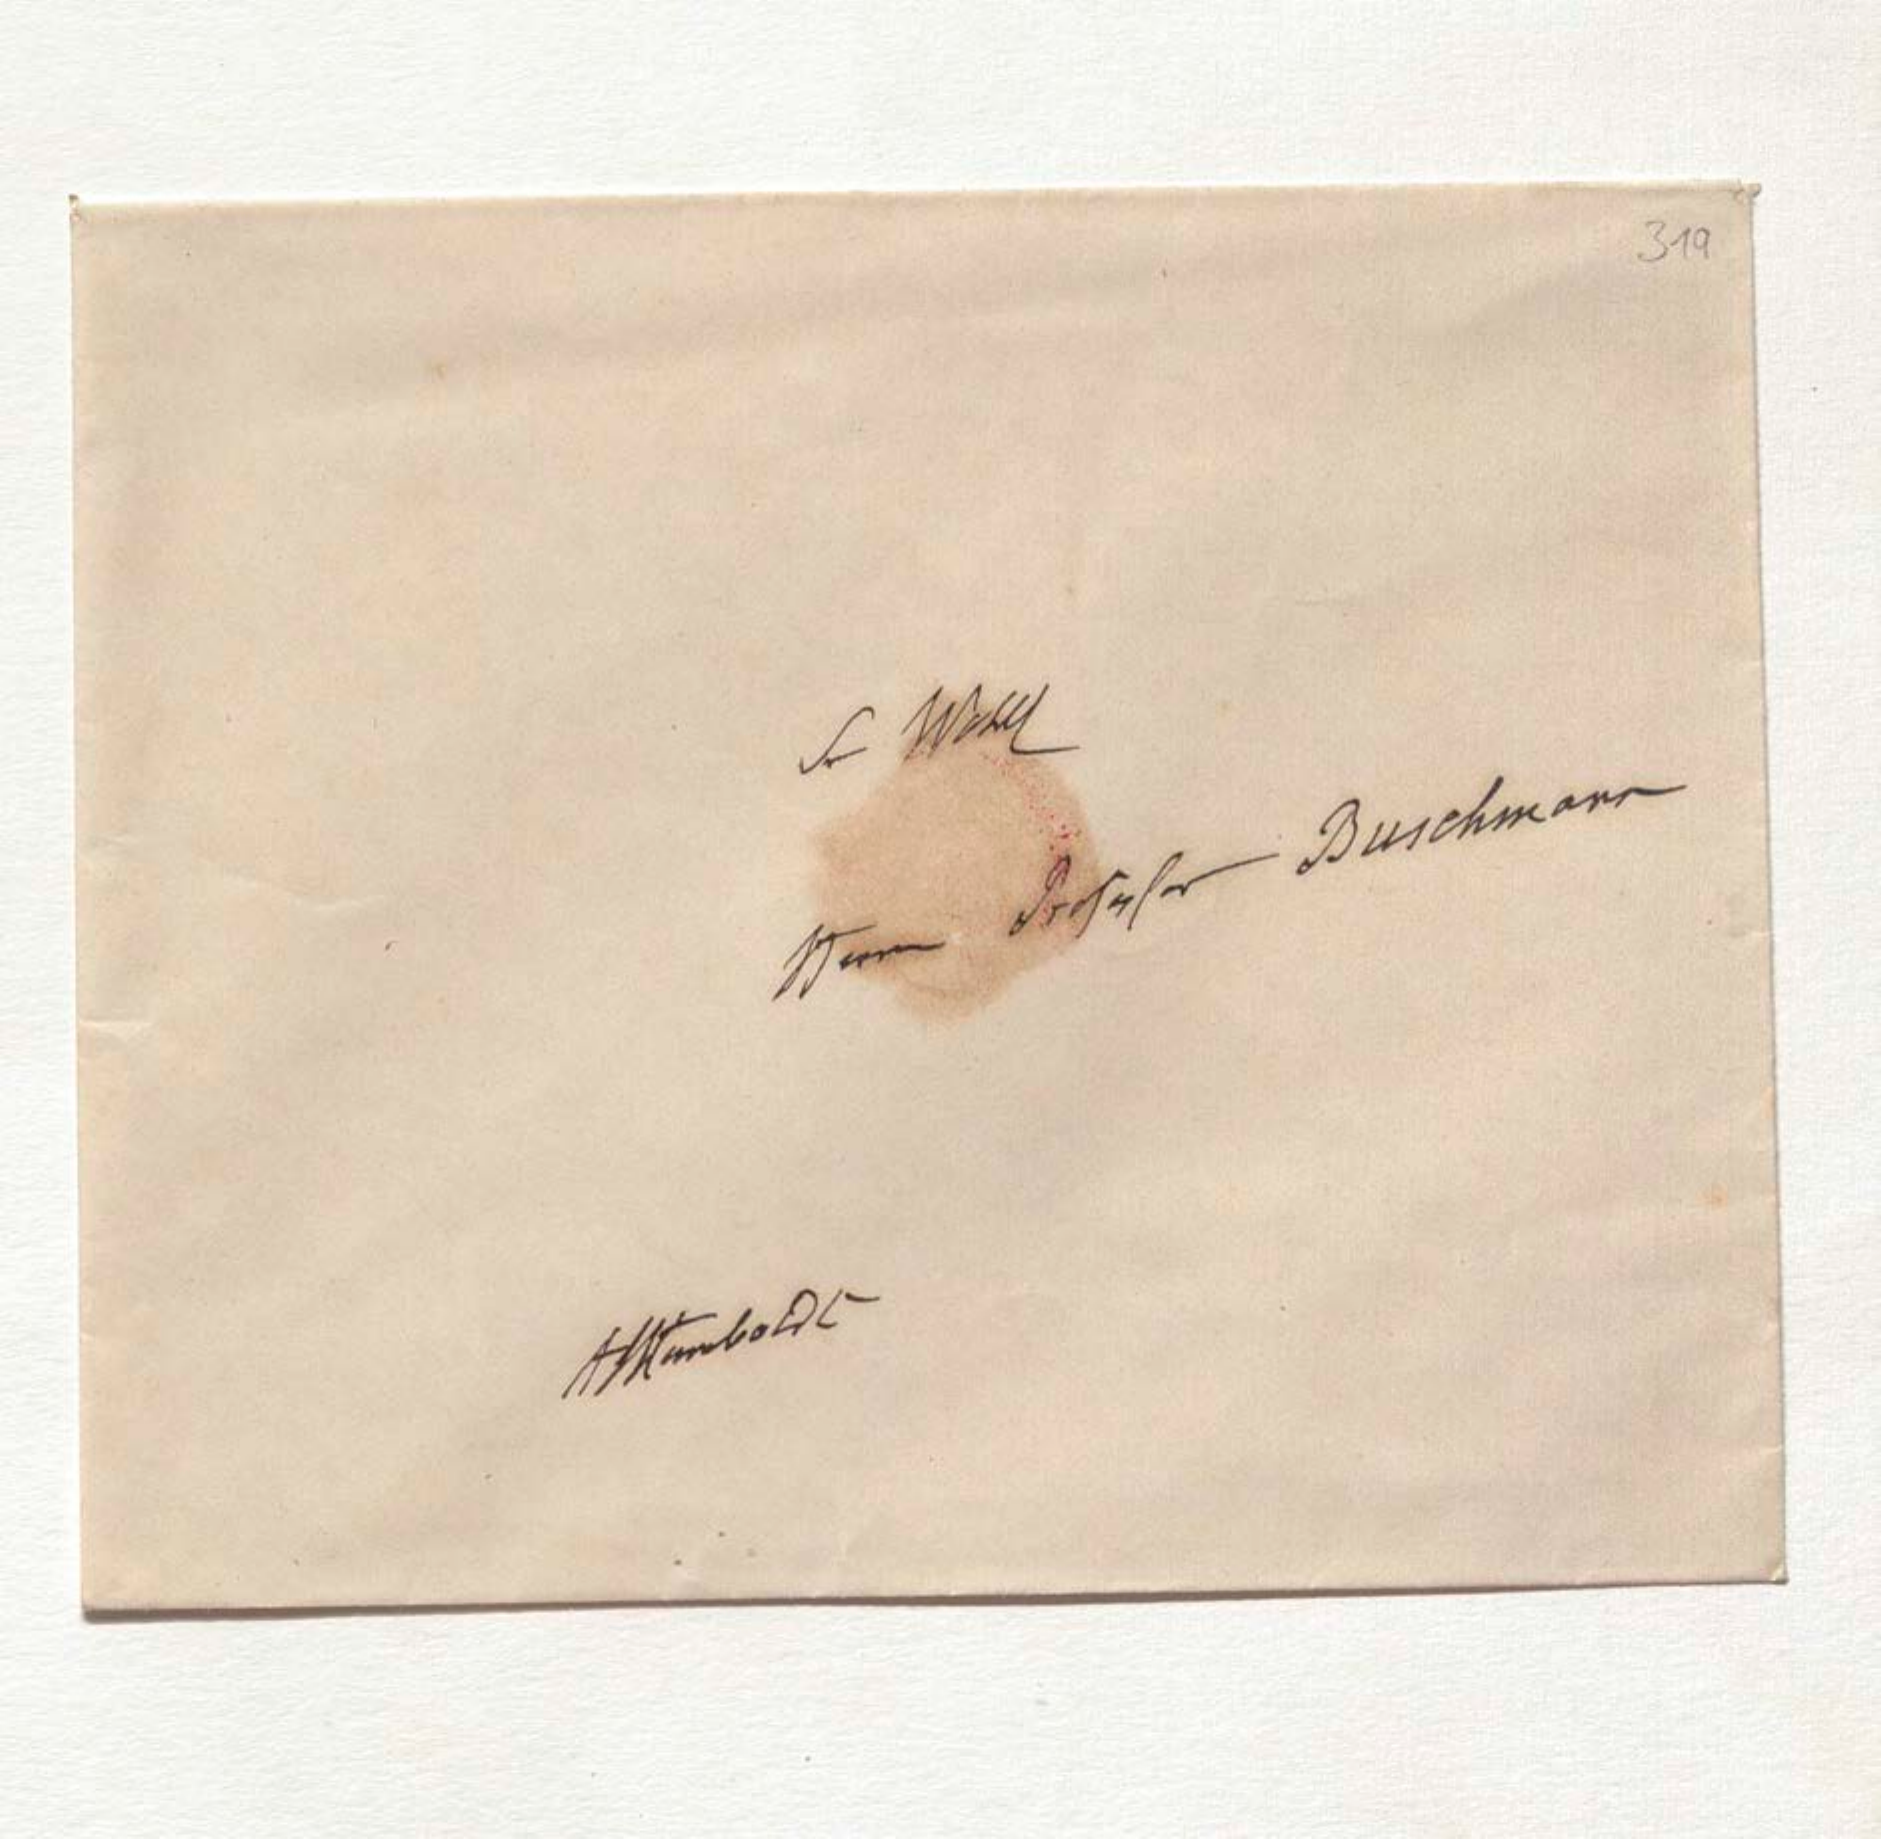 319
Sr Wohl
Herrn Professor Buschmann
AHumboldt